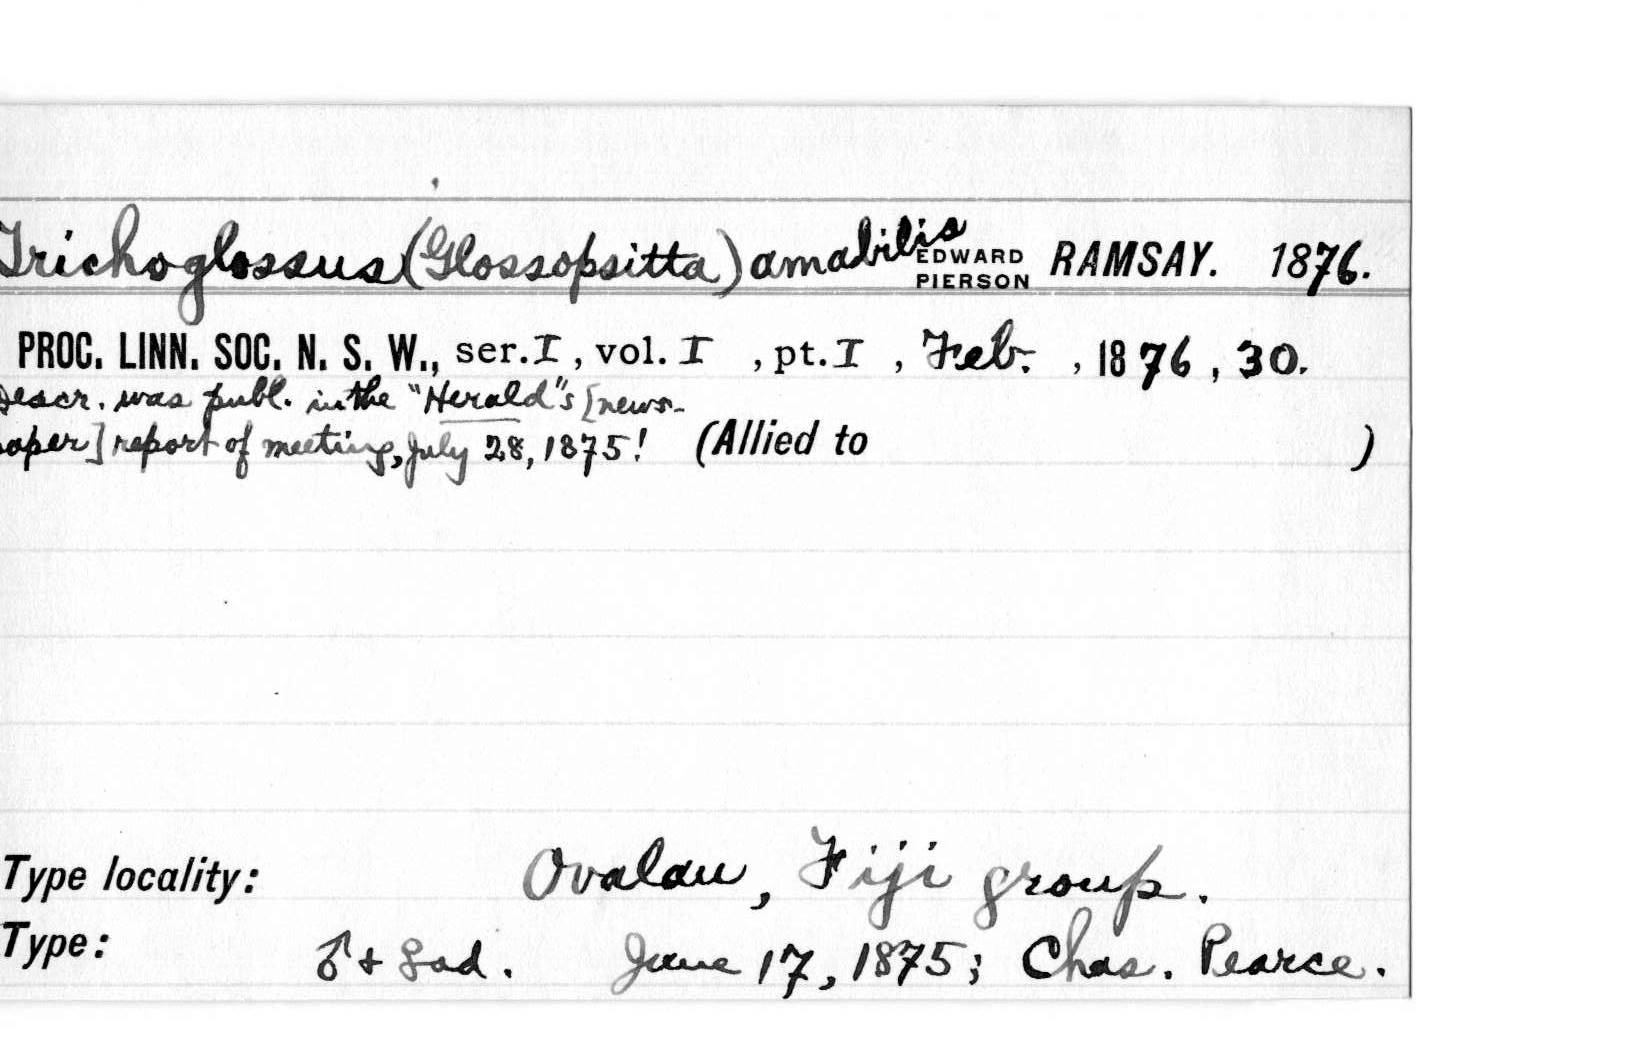 Trichoglossus (Glossopsitta) amabilis EDWARD PIERSON RAMSAY. 1876.
PROC. LINN. SOC. N. S. W., ser. I, vol. I , pt. I , Feb. , 1876, 30.
Descr. was publ. in the "Herald"s [news-
paper] report of meeting, July 28, 1875! (Allied to )
Type locality: Ovalau, Fiji group.
Type: ♂ + ad. June 17, 1875; Chas. Pearce.